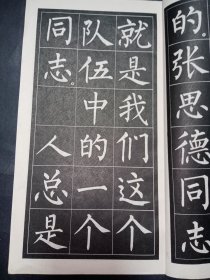 的。张思德同志
就是我们这个
队伍中的一个
同志。 人总是